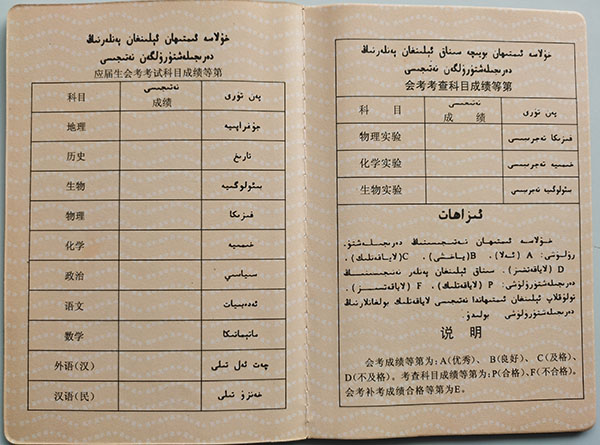 خۇلاسە ئىمتىھان ئېلىنغان پەنلەرنىڭ
دەرىجىلەشتۈرۈلگەن نەتىجىسى
应届生会考考试科目成绩等第
科目 نەتىجىسى پەن تۈرى
成绩
地理 جۇغراپىيە
历史 تارىخ
生物 بىئولوگىيە
物理 فىزىكا
化学 خىمىيە
政治 سىياسىي
语文 ئەدەبىيات
数学 ماتېماتىكا
外语(汉) چەت ئەل تىلى
汉语(民) خەنزۇ تىلى
خۇلاسە ئىمتىھان بويىچە سىناق ئېلىنغان پەنلەرنىڭ
دەرىجىلەشتۈرۈلگەن نەتىجىسى
会考考查科目成绩等第
科 目 نەتىجىسى پەن تۈرى
成 绩
物理实验 فىزىكا تەجرىبىسى
化学实验 خىمىيە تەجرىبىسى
生物实验 بىئولوگىيە تەجرىبىسى
ئىزاھات
خۇلاسە ئىمتىھان نەتىجىسىنىڭ دەرىجىلەشتۈ-
رۈلۈشى: A (ئەلا)، B(ياخشى)، C(لاياقەتلىك)،
D (لاياقەتسىز). سىناق ئېلىنغان پەنلەر نەتىجىسىنىڭ
دەرىجىلەشتۈرۈلۈشى: P (لاياقەتلىك)، F (لاياقەتسىز).
تولۇقلاپ ئېلىنغان ئىمتىھاندا نەتىجىسى لاياقەتلىك بولغانلارنىڭ
دەرىجىلەشتۈرۈلۈشى بولىدۇ.
说 明
会考成绩等第为:A(优秀)、B(良好)、C(及格)、
D(不及格)。考查科目成绩等第为:P(合格)、F(不合格)。
会考补考成绩合格等第为E。